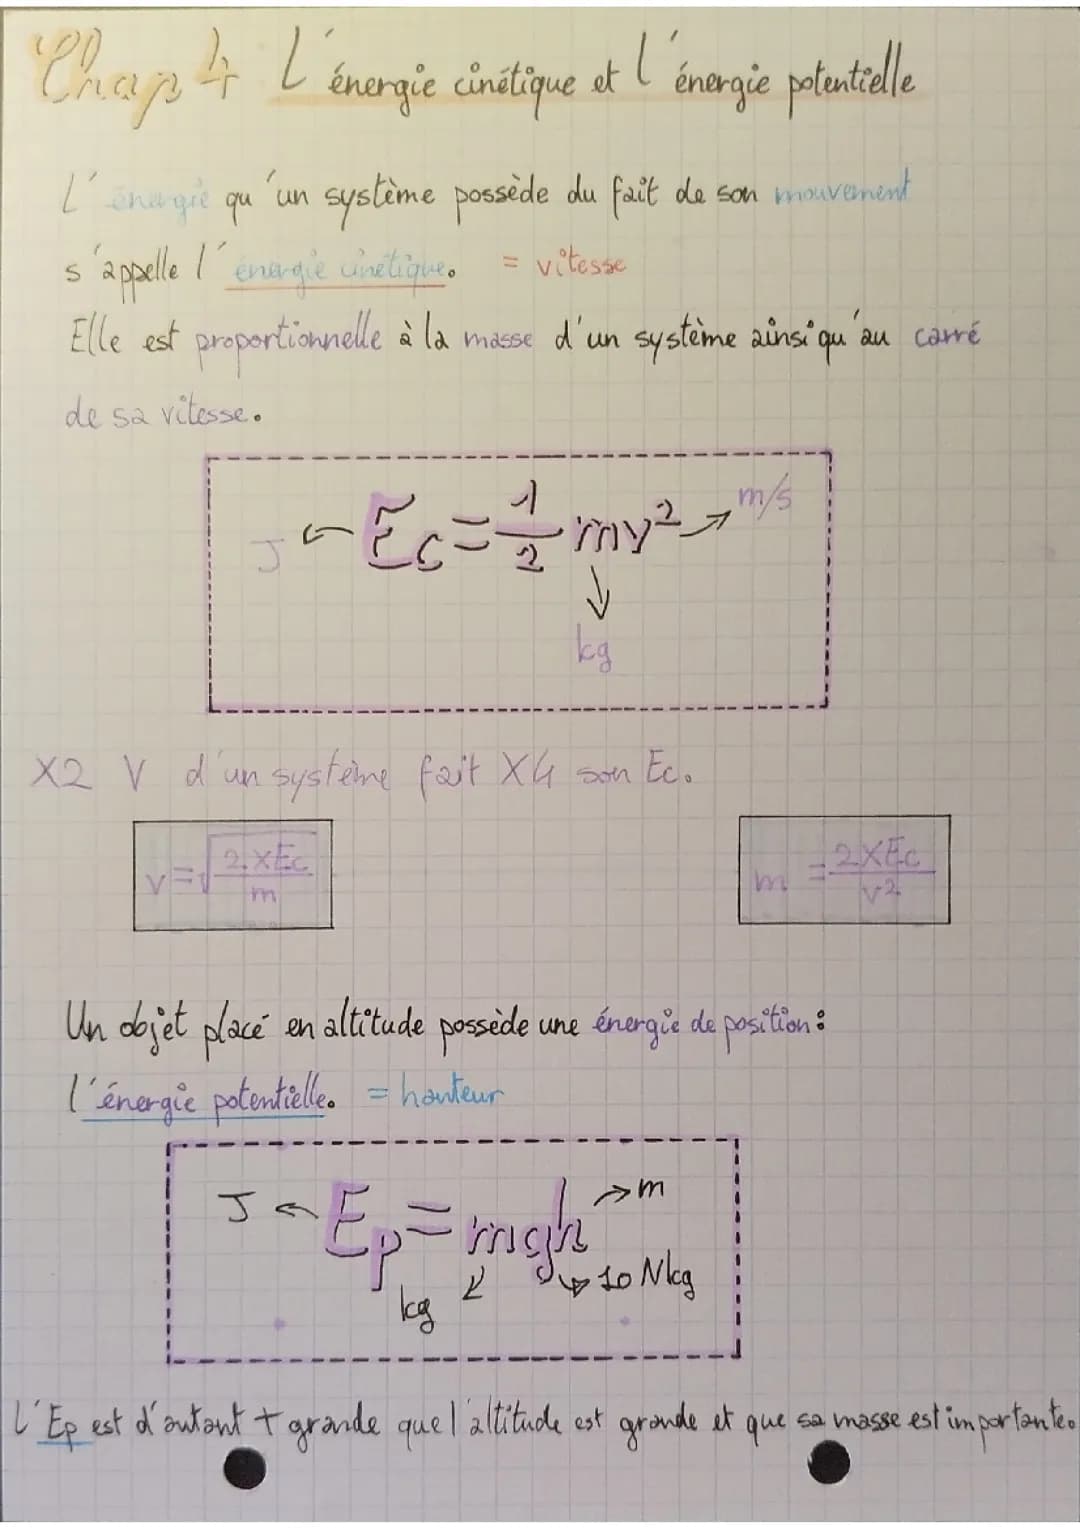 Chap 4 L'énergie cinétique et l'énergie potentielle
L'énergie qu'un système possède du fait de son mouvement
s'appelle l'énergie cinétique. = vitesse
Elle est proportionnelle à la masse d'un système ainsi qu'au carré
de sa vitesse.
J ← Ec = 1/2 mv² → m/s
↓
kg
X2 V d'un système fait X4 son Ec.
v = √(2×Ec/m) m = 2×Ec/v²
Un objet placé en altitude possède une énergie de position :
l'énergie potentielle. = hauteur
J ← Ep = mgh → m
kg ↙ ↳ 10 Nkg
L'Ep est d'autant + grande que l'altitude est grande et que sa masse est importante.